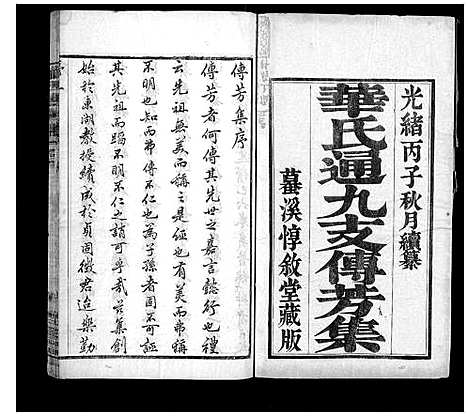 光緒丙子秋月續纂
華氏通九支傳芳集
蕩溪惇敘堂藏版
傳芳集序
傳芳者何傳其先世之嘉言懿行也禮
云先祖無美而稱之是誣也有美而弗稱
不明也知而弗傳不仁也為子孫者固不可誣
其先祖而蹈不明不仁之誚可乎哉吾集創
始於東湖教授續成於貞固徵君迨樂勤